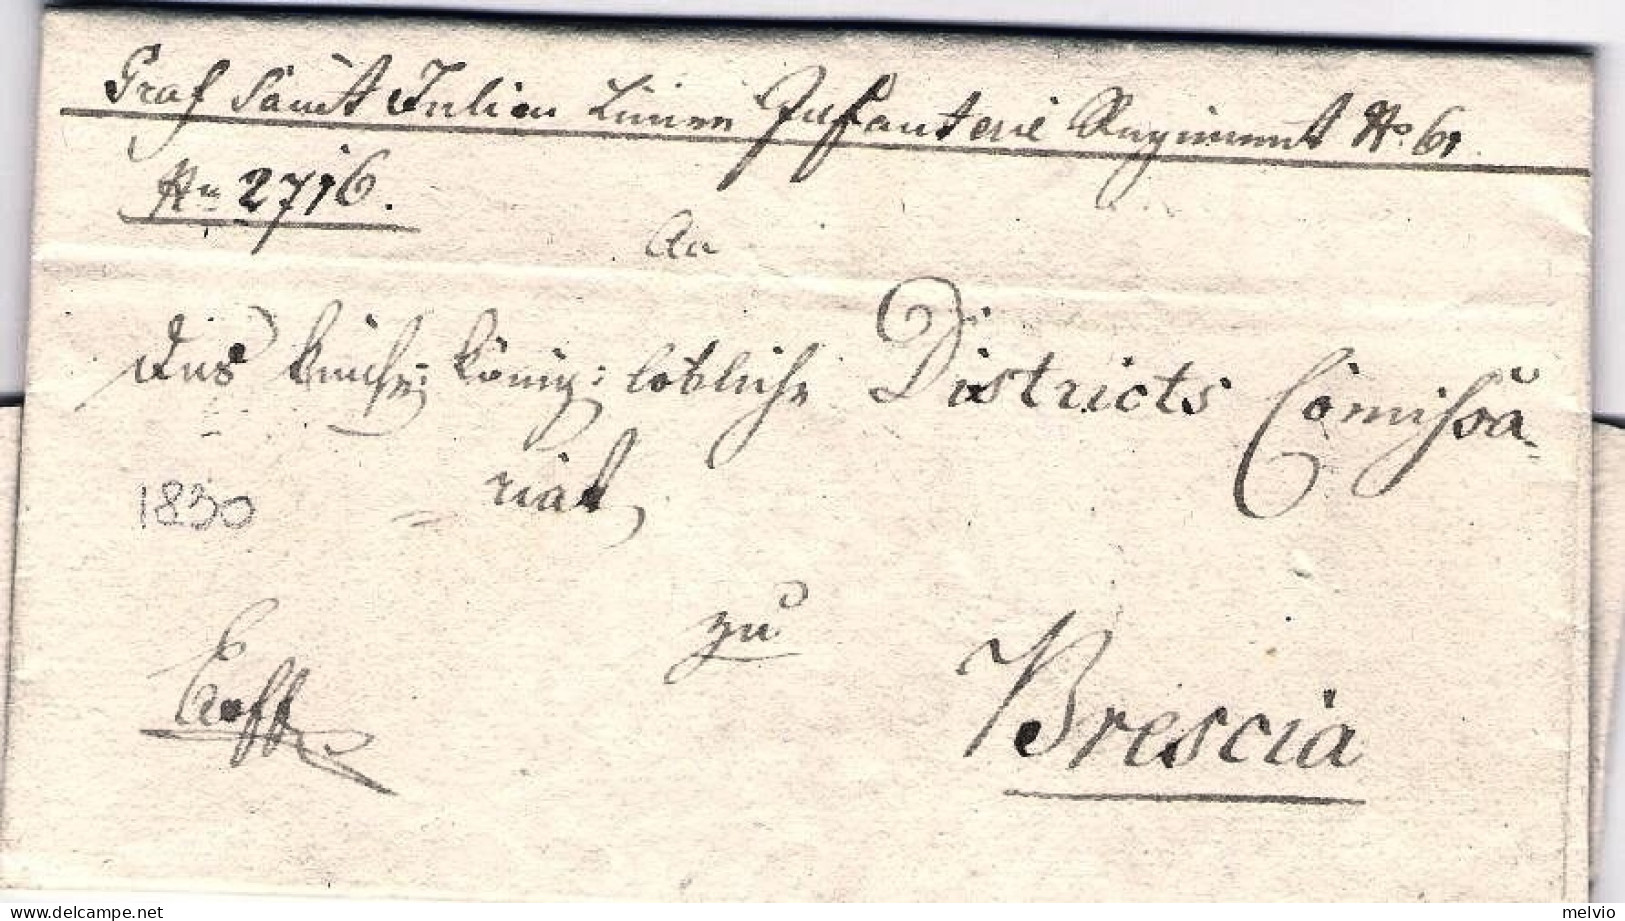 Graf Saint Julien Linien Infanterie Regiment No 61.
No 2716.
An
Das kaiserl: königl: löbliche Districts Comissa=
riat
1830
zu
Brescia
melvio